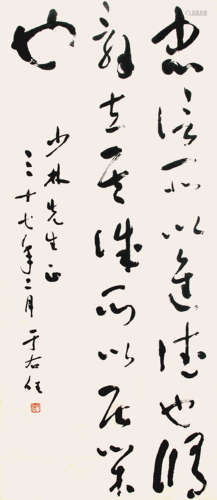 忠信所以進德也脩
辭立其誠所以居業
也
少林先生正
三十七年二月 于右任